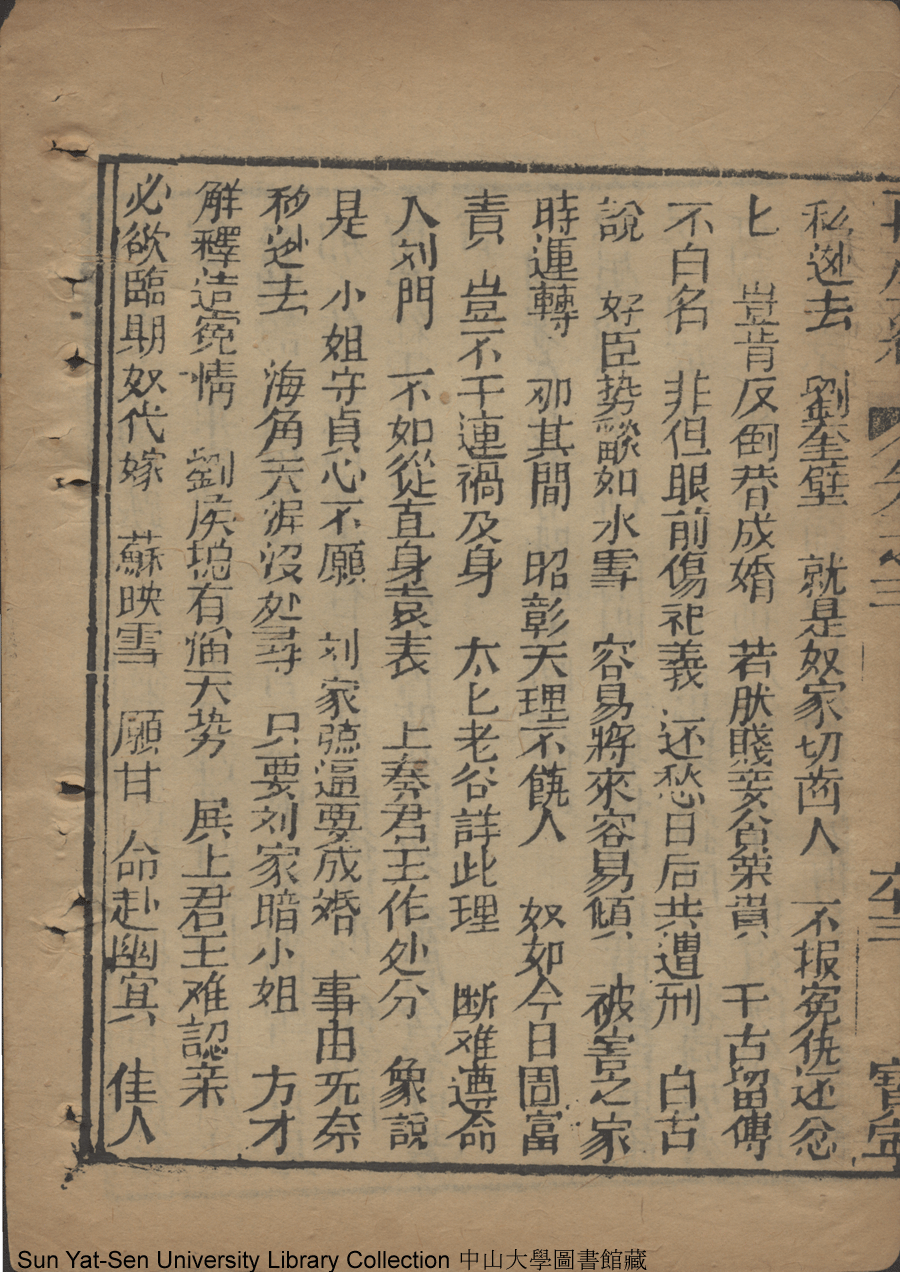 私迯去　劉奎壁　就是奴家切齒人　不报冤仇还忿
匕　豈肯反倒替成婚　若肰賤妾貪荣貴　千古畄傳
不白名　非但眼前傷祀義　还愁日后共遭刑　自古
說　奸臣势燄如水雪　容易將來容易傾　被害之家
時運轉　那其間　昭彰天理不饒人　奴如今日圖富
責　豈不干連禍及身　太匕老谷詳此理　断难遵命
入刘門　不如從直身袁表　上奏君王作处分　象說
是　小姐守貞心不願　刘家強逼要成婚　事由旡奈
私迯去　海角天涯沒处尋　只要刘家暗小姐　方才
解釋這冤情　劉侯揔有偷天势　展上君王难認亲
必欲臨期奴代嫁　蘇映雪　願甘　命赴幽㝠　佳人
卷之三
六十三
寳寧
Sun Yat-Sen University Library Collection 中山大學圖書館藏